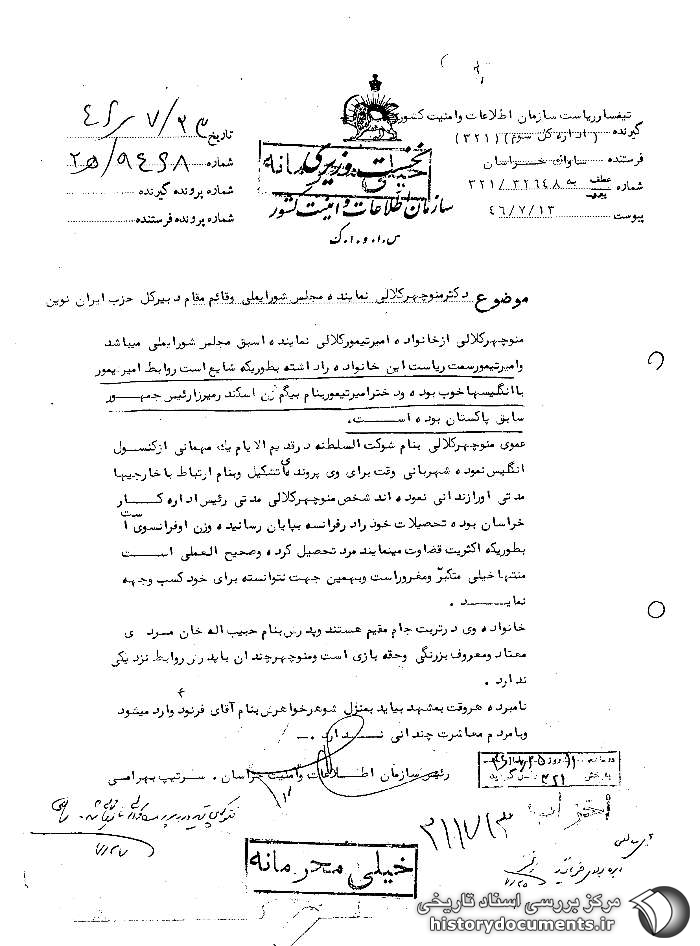 تیمسار ریاست سازمان اطلاعات و امنیت کشور
گیرنده (اداره کل سوم) (۳۲۱)
فرستنده ساواک خراسان
شماره عطف به ۳۲۱/۳۲۶۴۸
پیوست ۴۶/۷/۱۳
نخست وزیری
خیلی محرمانه
سازمان اطلاعات و امنیت کشور
س.ا.و.ا.ک
تاریخ ۴۶/۷/۲۳
شماره ۹۴۶۸/۲۵ه
شماره پرونده گیرنده
شماره پرونده فرستنده
موضوع دکتر منوچهر کلالی نماینده مجلس شورایملی وقائم مقام دبیرکل حزب ایران نوین
منوچهرکلالی ازخانواده امیرتیمورکلالی نماینده اسبق مجلس شورایملی میباشد
وامیرتیمورسمت ریاست این خانواده راداشته بطوریکه شایع است روابط امیرتیمور
باانگلیسهاخوب بوده ودخترامیرتیموربنام بیگم زن اسکندرمیرزارئیس جمهور
سابق پاکستان بوده است.
عموی منوچهرکلالی بنام شوکت السلطنه درقدیم الایام یك مهمانی ازکنسول
انگلیس نموده شهربانی وقت برای وی پرونده‌ای تشکیل وبنام ارتباط باخارجیها
مدتی اورازندانی نموده اند شخص منوچهرکلالی مدتی رئیس اداره کار
خراسان بوده تحصیلات خودرادرفرانسه بپایان رسانیده وزن اوفرانسوی است
بطوریکه اکثریت قضاوت مینمایند مرد تحصیل کرده وصحیح العملی است
منتهاخیلی متکبرّ ومغروراست وبهمین جهت نتوانسته برای خود کسب وجهه
نماید.
خانواده وی درتربت جام مقیم هستند وپدرش بنام حبیب اله خان مردی
معتاد ومعروف بزرنگی وحقه بازی است ومنوچهرچندان باپدرش روابط نزدیکی
ندارد.
نامبرده هروقت بمشهد بیاید بمنزل شوهرخواهرش بنام آقای فرنود وارد میشود
وبامردم معاشرت چندانی ندارد.
رئیس سازمان اطلاعات وامنیت خراسان. سرتیپ بهرامی
۳۲۱
احزاب
۳۱۱۷۱۳
۷/۲۷
۷/۲۵
خیلی محرمانه
مرکز بررسی اسناد تاریخی
historydocuments.ir